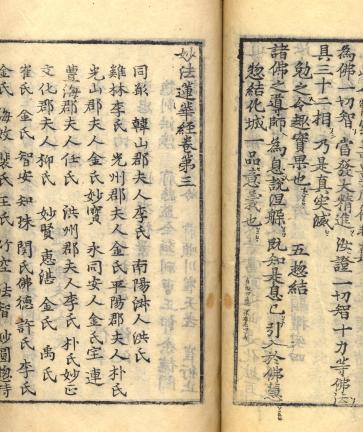 為佛一切智當發大精進汝證一切智十力等佛法
具三十二相乃是真實滅
勉之令趣寶果也 五惣結
諸佛之導師為息說涅槃既知是息已引入於佛慧
惣結化城一品意義也
妙法蓮華經卷第三
同彰 韓山郡夫人李氏 南陽洪人洪氏
雞林李氏 光州郡夫人金氏平陽郡夫人朴氏
光山郡夫人金氏妙寶 永同安人金氏宝連
豊海郡夫人任氏 洪州郡夫人李氏朴氏妙正
文化郡夫人柳氏 妙賢 恵湛 金氏 禹氏
崔氏 金氏 智安 知珠 閔氏佛德 許氏 李氏
金氏 裴氏王氏 竹空 法智 妙圓